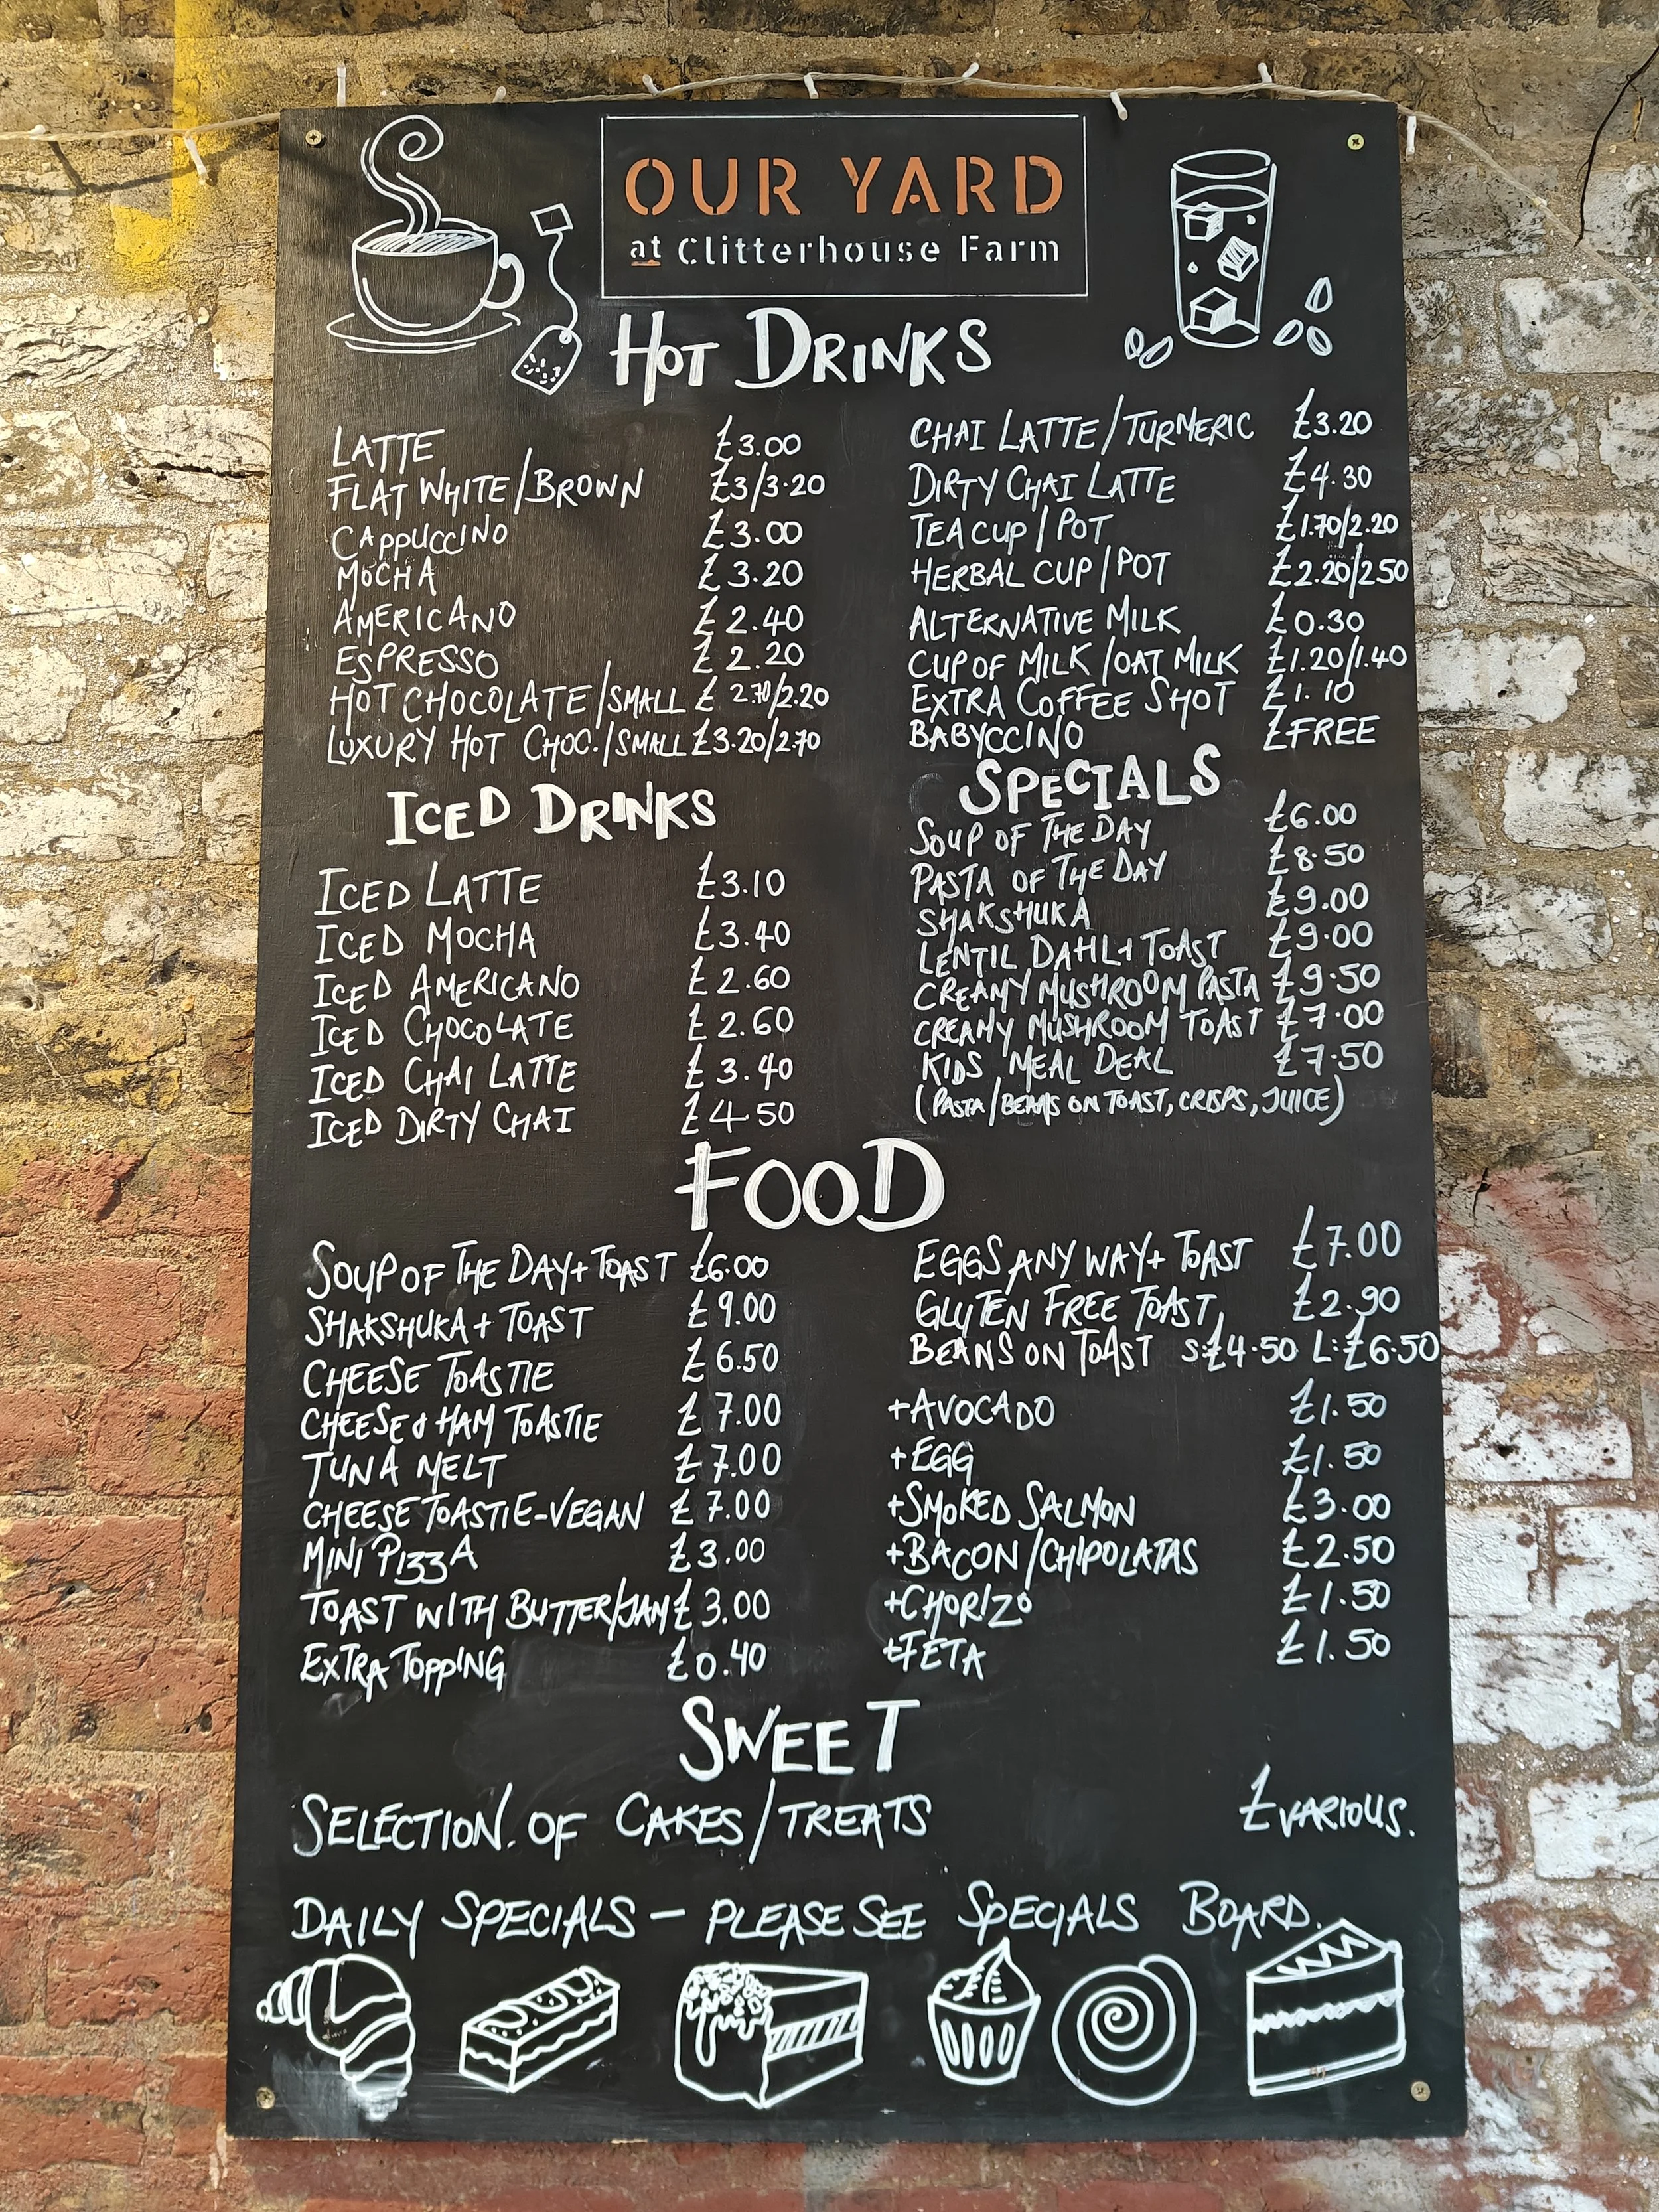 OUR YARD
at Clitterhouse Farm
HOT DRINKS
LATTE £3.00
FLAT WHITE/BROWN £3/3.20
CAPPUCCINO £3.00
MOCHA £3.20
AMERICANO £2.40
ESPRESSO £2.20
HOT CHOCOLATE/SMALL £2.70/2.20
LUXURY HOT CHOC./SMALL £3.20/2.70
CHAI LATTE/TURMERIC £3.20
DIRTY CHAI LATTE £4.30
TEA CUP/POT £1.70/2.20
HERBAL CUP/POT £2.20/250
ALTERNATIVE MILK £0.30
CUP OF MILK/OAT MILK £1.20/1.40
EXTRA COFFEE SHOT £1.10
BABYCCINO £FREE
ICED DRINKS
ICED LATTE £3.10
ICED MOCHA £3.40
ICED AMERICANO £2.60
ICED CHOCOLATE £2.60
ICED CHAI LATTE £3.40
ICED DIRTY CHAI £4 50
SPECIALS
SOUP OF THE DAY £6.00
PASTA OF THE DAY £8.50
SHAKSHUKA £9.00
LENTIL DAHL+TOAST £9.00
CREAMY MUSHROOM PASTA £9.50
CREAMY MUSHROOM TOAST £7.00
KIDS MEAL DEAL £7.50
(PASTA/BEANS ON TOAST, CRISPS, JUICE)
FOOD
SOUP OF THE DAY+TOAST £6.00
SHAKSHUKA+TOAST £9.00
CHEESE TOASTIE £6.50
CHEESE & HAM TOASTIE £7.00
TUNA MELT £7.00
CHEESE TOASTIE-VEGAN £7.00
MINI PIZZA £3.00
TOAST WITH BUTTER/JAM £3.00
EXTRA TOPPING £0.40
EGGS ANY WAY+TOAST £7.00
GLUTEN FREE TOAST £2.90
BEANS ON TOAST S:£4.50 L:£6.50
+AVOCADO £1.50
+EGG £1.50
+SMOKED SALMON £3.00
+BACON/CHIPOLATAS £2.50
+CHORIZO £1.50
+FETA £1.50
SWEET
SELECTION OF CAKES/TREATS £VARIOUS.
DAILY SPECIALS - PLEASE SEE SPECIALS BOARD.